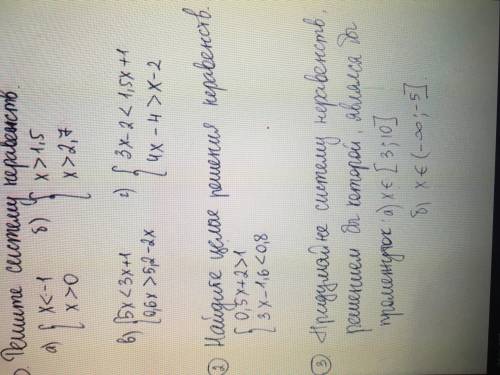 Решите систему неравенств.
а) { x<-1
x>0
б) { x>1,5
x>2,7
в) { 5x<3x+1
0,6x>5,2-2x
г) { 3x-2<1,5x+1
4x-4>x-2
② Найдите целое решения неравенств.
{ 0,5x+2>1
3x-1,6<0,8
③ Придумайте систему неравенств,
решением бы которой, являлся бы
промежуток: а) x∈[3;10]
б) x∈(-∞;-5].